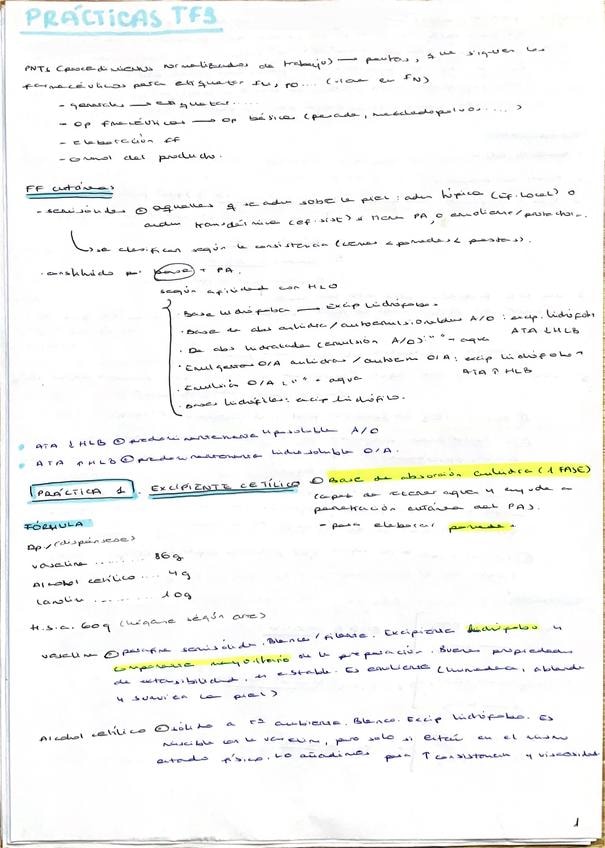 PRÁCTICAS TF3
PNTs (procedimientos normalizados de trabajo) → pautas, que siguen los
farmacéuticos para etiquetar FM, PO... (viene en FN)
- generales → etiquetar.....
- Op farmacéuticas → Op básicas (pesada, mezcla de polvos.....)
- elaboración FF
- control del producto.
FF cutáneas
- semisólidas aquellas q se adm sobre la piel: adm tópica (ef. local) o
adm transdérmica (ef. sist) si tiene PA, o emoliente/protector.
se clasifican según la consistencia (cremas < pomadas < pastas).
constituido por base + PA.
según afinidad con H2O
· Base hidrófoba → excip hidrófobos
· Base de abs anhidra/autoemulsionables A/O: excip. hidrófobo
ATA ↓HLB
· De abs hidratadas (emulsión A/O) " " + agua
· Emulgentes O/A anhidras/autoem O/A: excip hidrófobo +
ATA ↑ HLB
· Emulsión O/A: " " + agua
· Bases hidrófilas: excip hidrófilo.
• ATA ↓ HLB predominantemente liposoluble A/O
• ATA ↑HLB predominantemente hidrosoluble O/A.
PRÁCTICA 1. EXCIPIENTE CETÍLICO Base de absorción anhidra (1 FASE)
capaz de retener agua y ayuda a
penetración cutánea del PAs.
- para elaborar pomadas
FÓRMULA
Dp./(dispénsese)
vaselina ....... 86g
Alcohol cetílico ... 4g
Lanolina ......... 10g
H.s.a. 60g (hágase según arte)
vaselina parafina semisólida. Blanca/filante. Excipiente hidrófobo y
componente mayoritario de la preparación. Buenas propiedades
de extensibilidad, es estable. Es emoliente (humedece, ablanda
y suaviza la piel)
Alcohol cetílico sólido a Tª ambiente. Blanco. Excip hidrófobo. Es
miscible con la vaselina, pero solo si están en el mismo
estado físico. Lo añadimos para ↑ consistencia y viscosidad
1